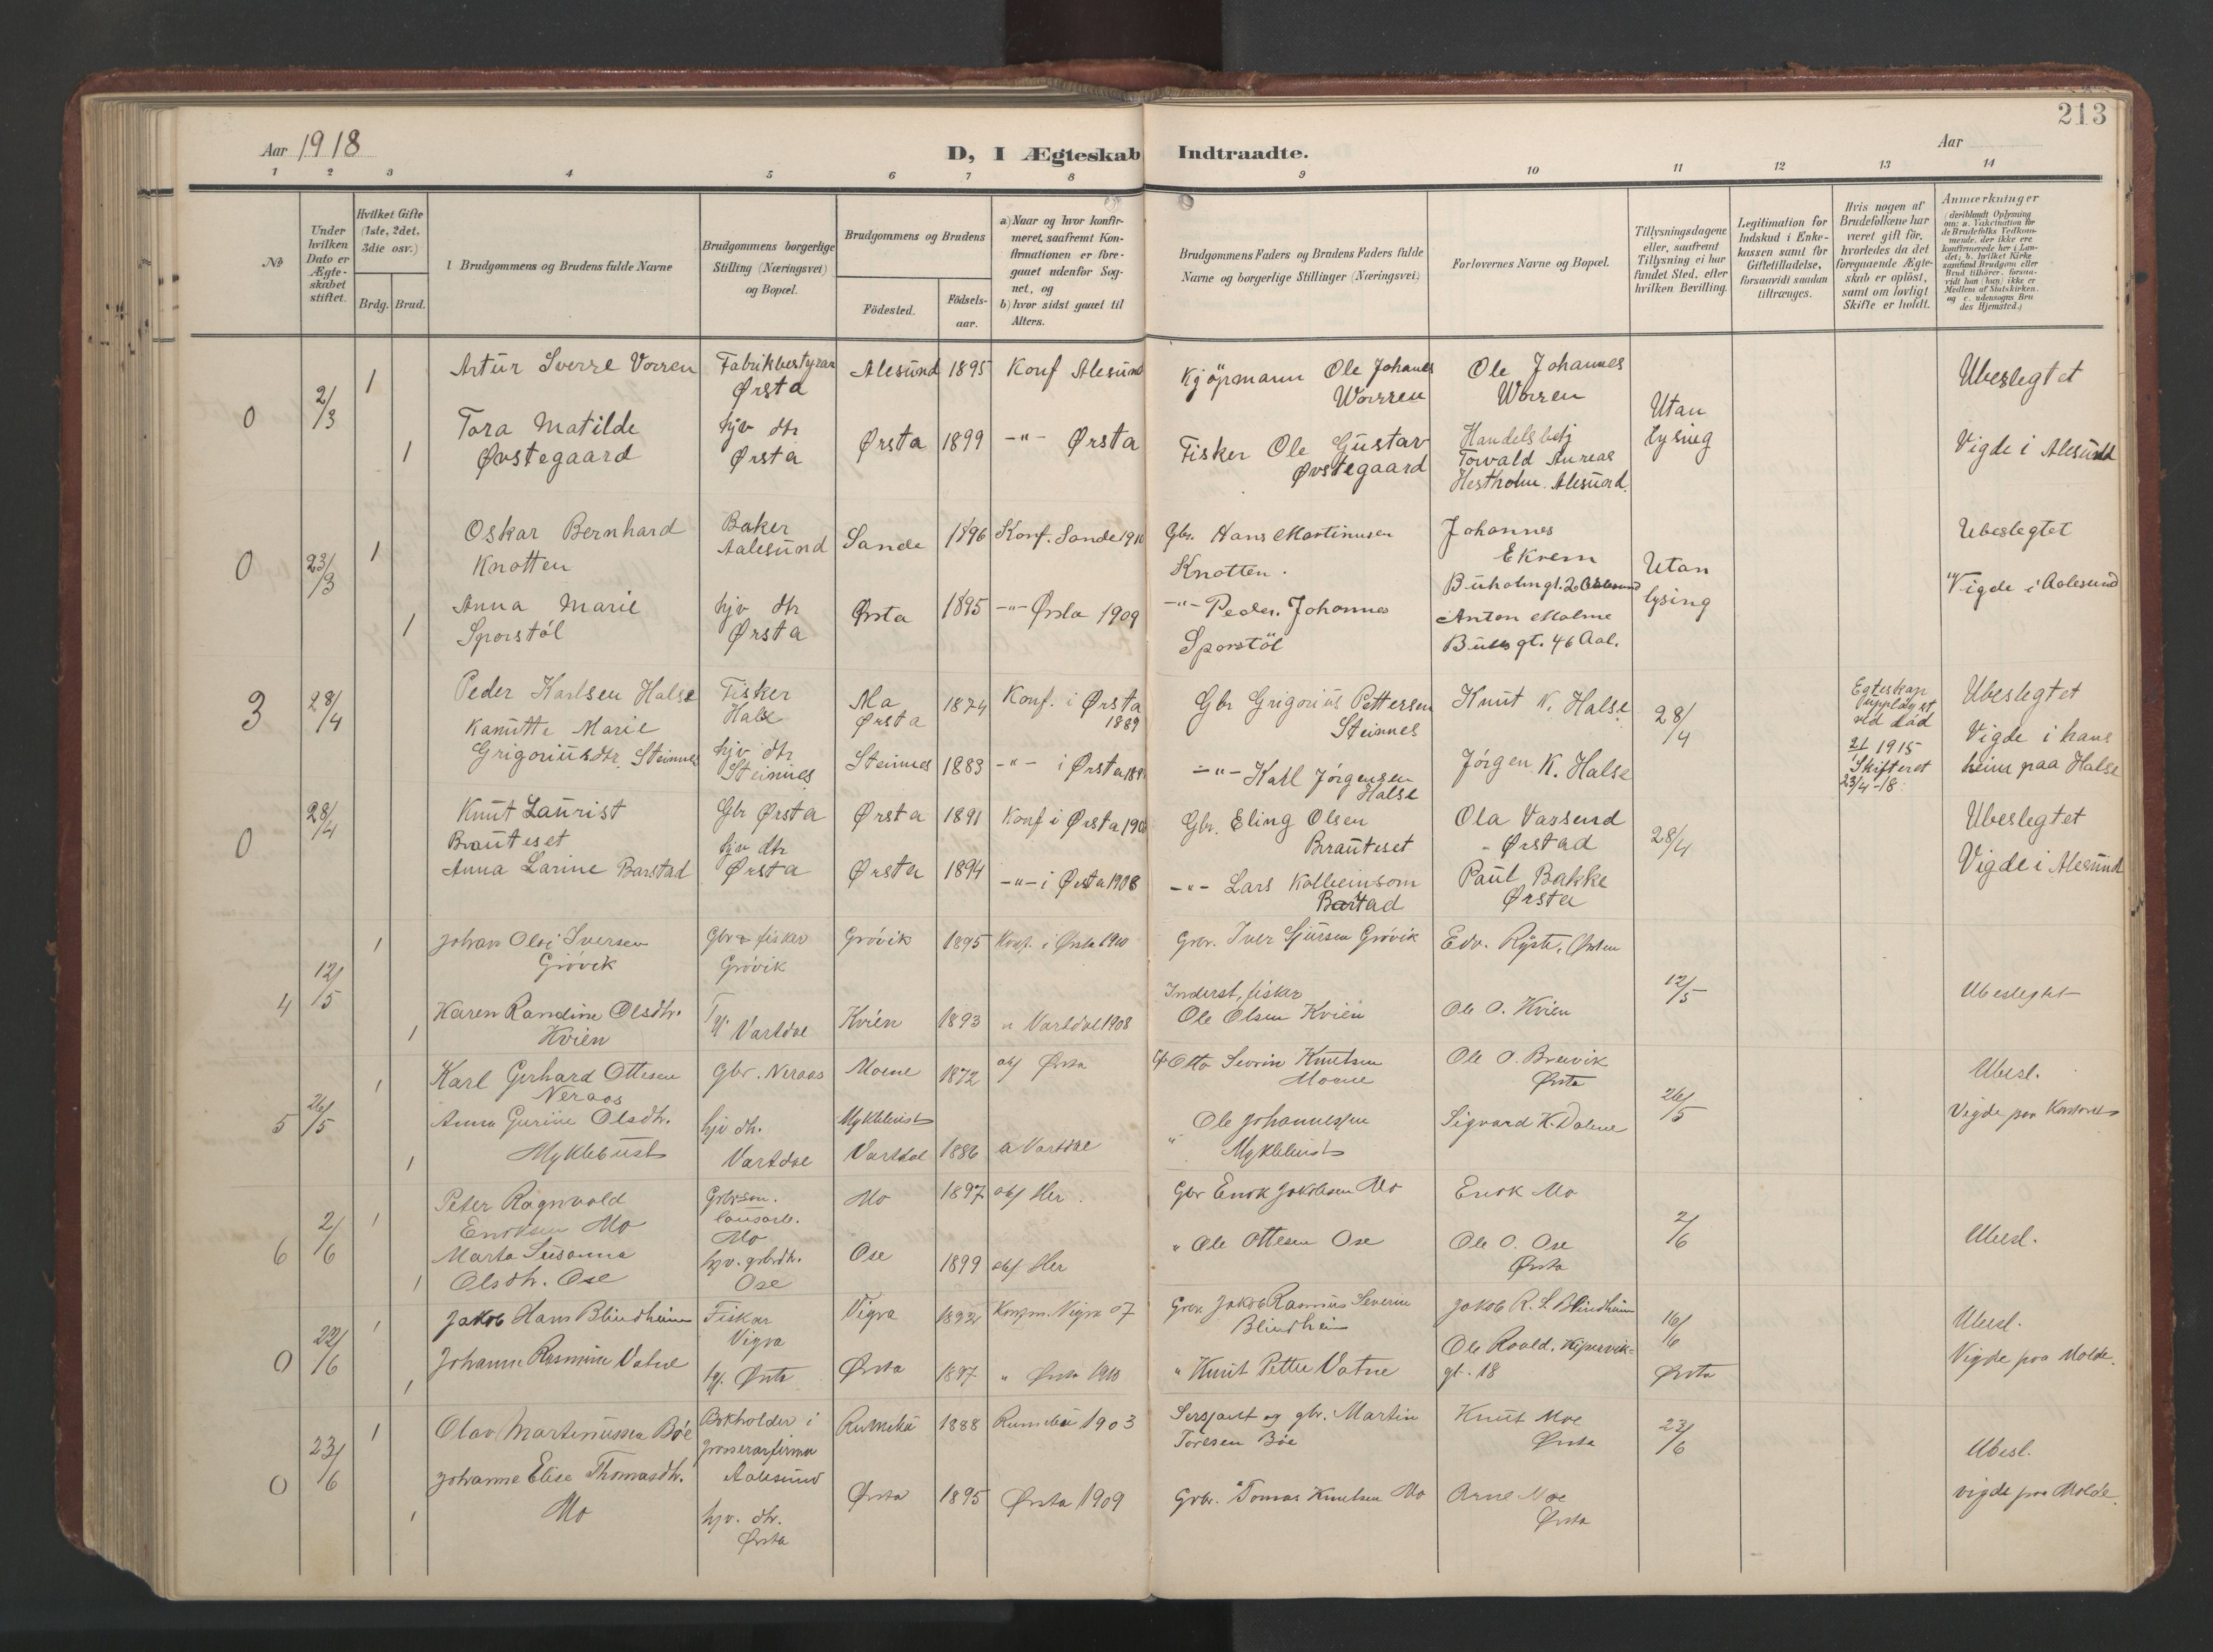 213
Aar 1918
D, I Ægteskab Indtraadte.
Aar
1 2 3 4 5 6 7 8 9 10 11 12 13 14
№
Under hvilken Dato er Ægteskabet stiftet.
Hvilket Gifte (1ste, 2det, 3die osv.)
Brdg. Brud.
Brudgommens og Brudens fulde Navne
Brudgommens borgerlige Stilling (Næringsvei) og Bopæl.
Brudgommens og Brudens
Födested.
Födsels-aar.
a) Naar og hvor konfirmeret, saafremt Konfirmationen er foregaaet udenfor Sognet, og
b) hvor sidst gaaet til Alters.
Brudgommens Faders og Brudens Faders fulde Navne og borgerlige Stillinger (Næringsvei)
Forlovernes Navne og Bopæl.
Tillysningsdagene eller, saafremt Tillysning ei har fundet Sted, efter hvilken Bevilling.
Legitimation for Indskud i Enkekassen samt for Giftetilladelse, forsaavidt saadan tiltrænges.
Hvis nogen af Brudefolkene har været gift för, hvorledes da det foregaaende Ægteskab er oplöst, samt om lovligt Skifte er holdt.
Anmærkninger
(deriblandt Oplysning om: a. Vakcination for de Brudefolks Vedkommende, der ikke ere konfirmerede her i Landet; b. hvilket Kirkesamfund Brudgom eller Brud tilhører, forsaavidt han (hun) ikke er Medlem af Statskirken. og c. udensogns Brudes Hjemsted.)
0 2/3 1 Artur Sverre Vorren Fabrikbestyrar Ørsta Alesund 1895 Konf Alesund Kjöpmann Ole Johanes Worren Ole Johannes Worren Utan lysing Ubeslegtet
1 Tora Matilde Øvstegaard hjv dtr Ørsta Ørsta 1899 -"- Ørsta Fisker Ole Gustav Øvstegaard Handelsbetj Torvald Anreas Hestholm Alesund. Vigde i Alesund
0 23/3 1 Oskar Bernhard Knotten Baker Aalesund Sande 1896 Konf. Sande 1910 Gbr. Hans Martinusen Knotten. Johannes Ekrem Buholmgt. 2 Aalesund Utan lysing Ubeslegtet
1 Anna Marie Sporstöl hjv dtr Ørsta Ørsta 1895 -"- Ørsta 1909 -"- Peder Johannes Sporstöl Anton Malme gt. 46 Aal. Vigde i Aalesund
3 28/4 Peder Karlsen Halse Fisker Halse Mo Ørsta 1874 Konf. i Ørsta 1889 Gbr Grigorius Pettersen Steinnes Knut K. Halse 28/4 Egteskap upplöyst ved död 1915 Skifteret 23/4-18 Ubeslegtet
Kanutte Marie Grigoriusdtr. Steinnes hjv dtr Steinnes Steinnes 1883 -"- i Ørsta -"- Karl Jörgensen Halse Jörgen K. Halse Vigde i hans heim paa Halse
0 28/4 Knut Laurist Brauteset Gbr Ørsta Ørsta 1891 Konf i Ørsta Gbr. Eling Olsen Brauteset Ola Vassend - Ørstad 28/4 Ubeslegtet
Anna Larine Barstad hjv dtr Ørsta Ørsta 1894 -"- i Ørsta 1908 -"- Lars Kolbeinson Barstad Paul Bakke Ørsta Vigde i Alesund
4 12/5 1 Johan Iversen Grövik Gbr & fisker Grövik Grövik 1895 Konf. i Ørsta 1910 Gbr. Iver Sjursen Grövik Edv. Ryste, Ørsta 12/5 Ubeslegtet
1 Karen Randine Olsdtr. Kvien Vartdal Kvien 1893 " Vartdal 1908 Inderst, fisker Ole Olsen Kvien Ole O. Kvien
5 26/5 1 Karl Gerhard Ottesen Neraas Gbr. Neraas Moene 1872 Ørsta Otto Sevrin Knutsen Moene Ole O. Breivik Ørsta 26/5 Ubesl.
1 Anna Gurine Olsdtr. Myklebust hjv dtr. Vartdal Myklebust Vartdal 1886 Vartdal " Ole Johannessen Myklebust Sigvard K. Dalene Vigde paa Kontoret
6 2/6 1 Peter Ragnvald Enoksen Mo Gbrson. lausarb. Mo Mo 1897 Her Gbr Enok Jakobsen Mo Enok Mo 2/6 Ubesl.
1 Marta Susanna Olsdtr. Ose hjv. gbrdtr. Ose Ose 1899 Her " Ole Ottesen Ose Ole O. Ose Ørsta
0 22/6 1 Jakob Hans Blindheim Fiskar Vigra Vigra 1892 Konfm. Vigra 07 Gbr. Jakob Rasmus Severin Blindheim Jakob R. S. Blindheim 16/6 Ørsta Ubesl.
1 Johanne Rasmine Vatne hj. Ørsta Ørsta 1897 " Ørsta 1913 " Knut Petter Vatne Ole Roald, Kipervikgt. 18 Vigde paa Molde.
0 23/6 1 Olav Martinussen Böe Bokholder i grosserarfirma Aalesund 1888 1903 Sersjant og gbr. Martin Toresen Böe Knut Moe Ørsta 23/6 Ubesl.
1 Johanne Elise Thomasdtr. Mo hjv. dtr. Ørsta Ørsta 1895 Ørsta 1909 Gbr. Tomas Knutsen Mo Arne Moe Ørsta vigde paa Molde.